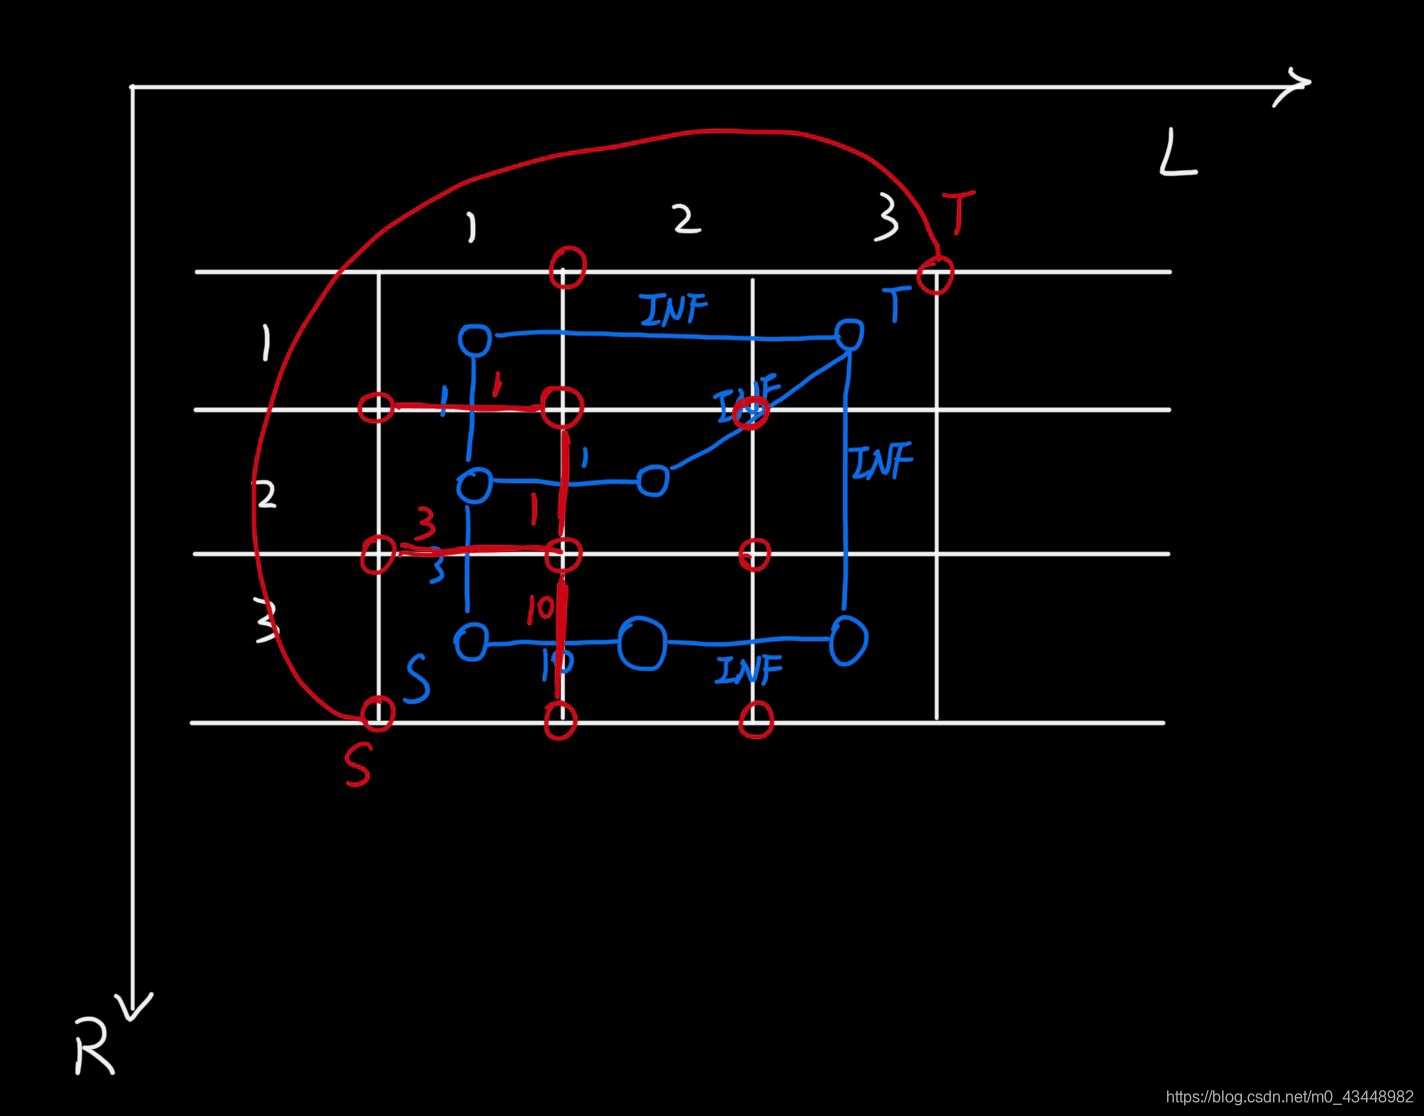 L
1 2 3 T
INF T
1
1 1 INF
1 INF
2
3 1
3
10
3
10 INF
S
S
R
https://blog.csdn.net/m0_43448982